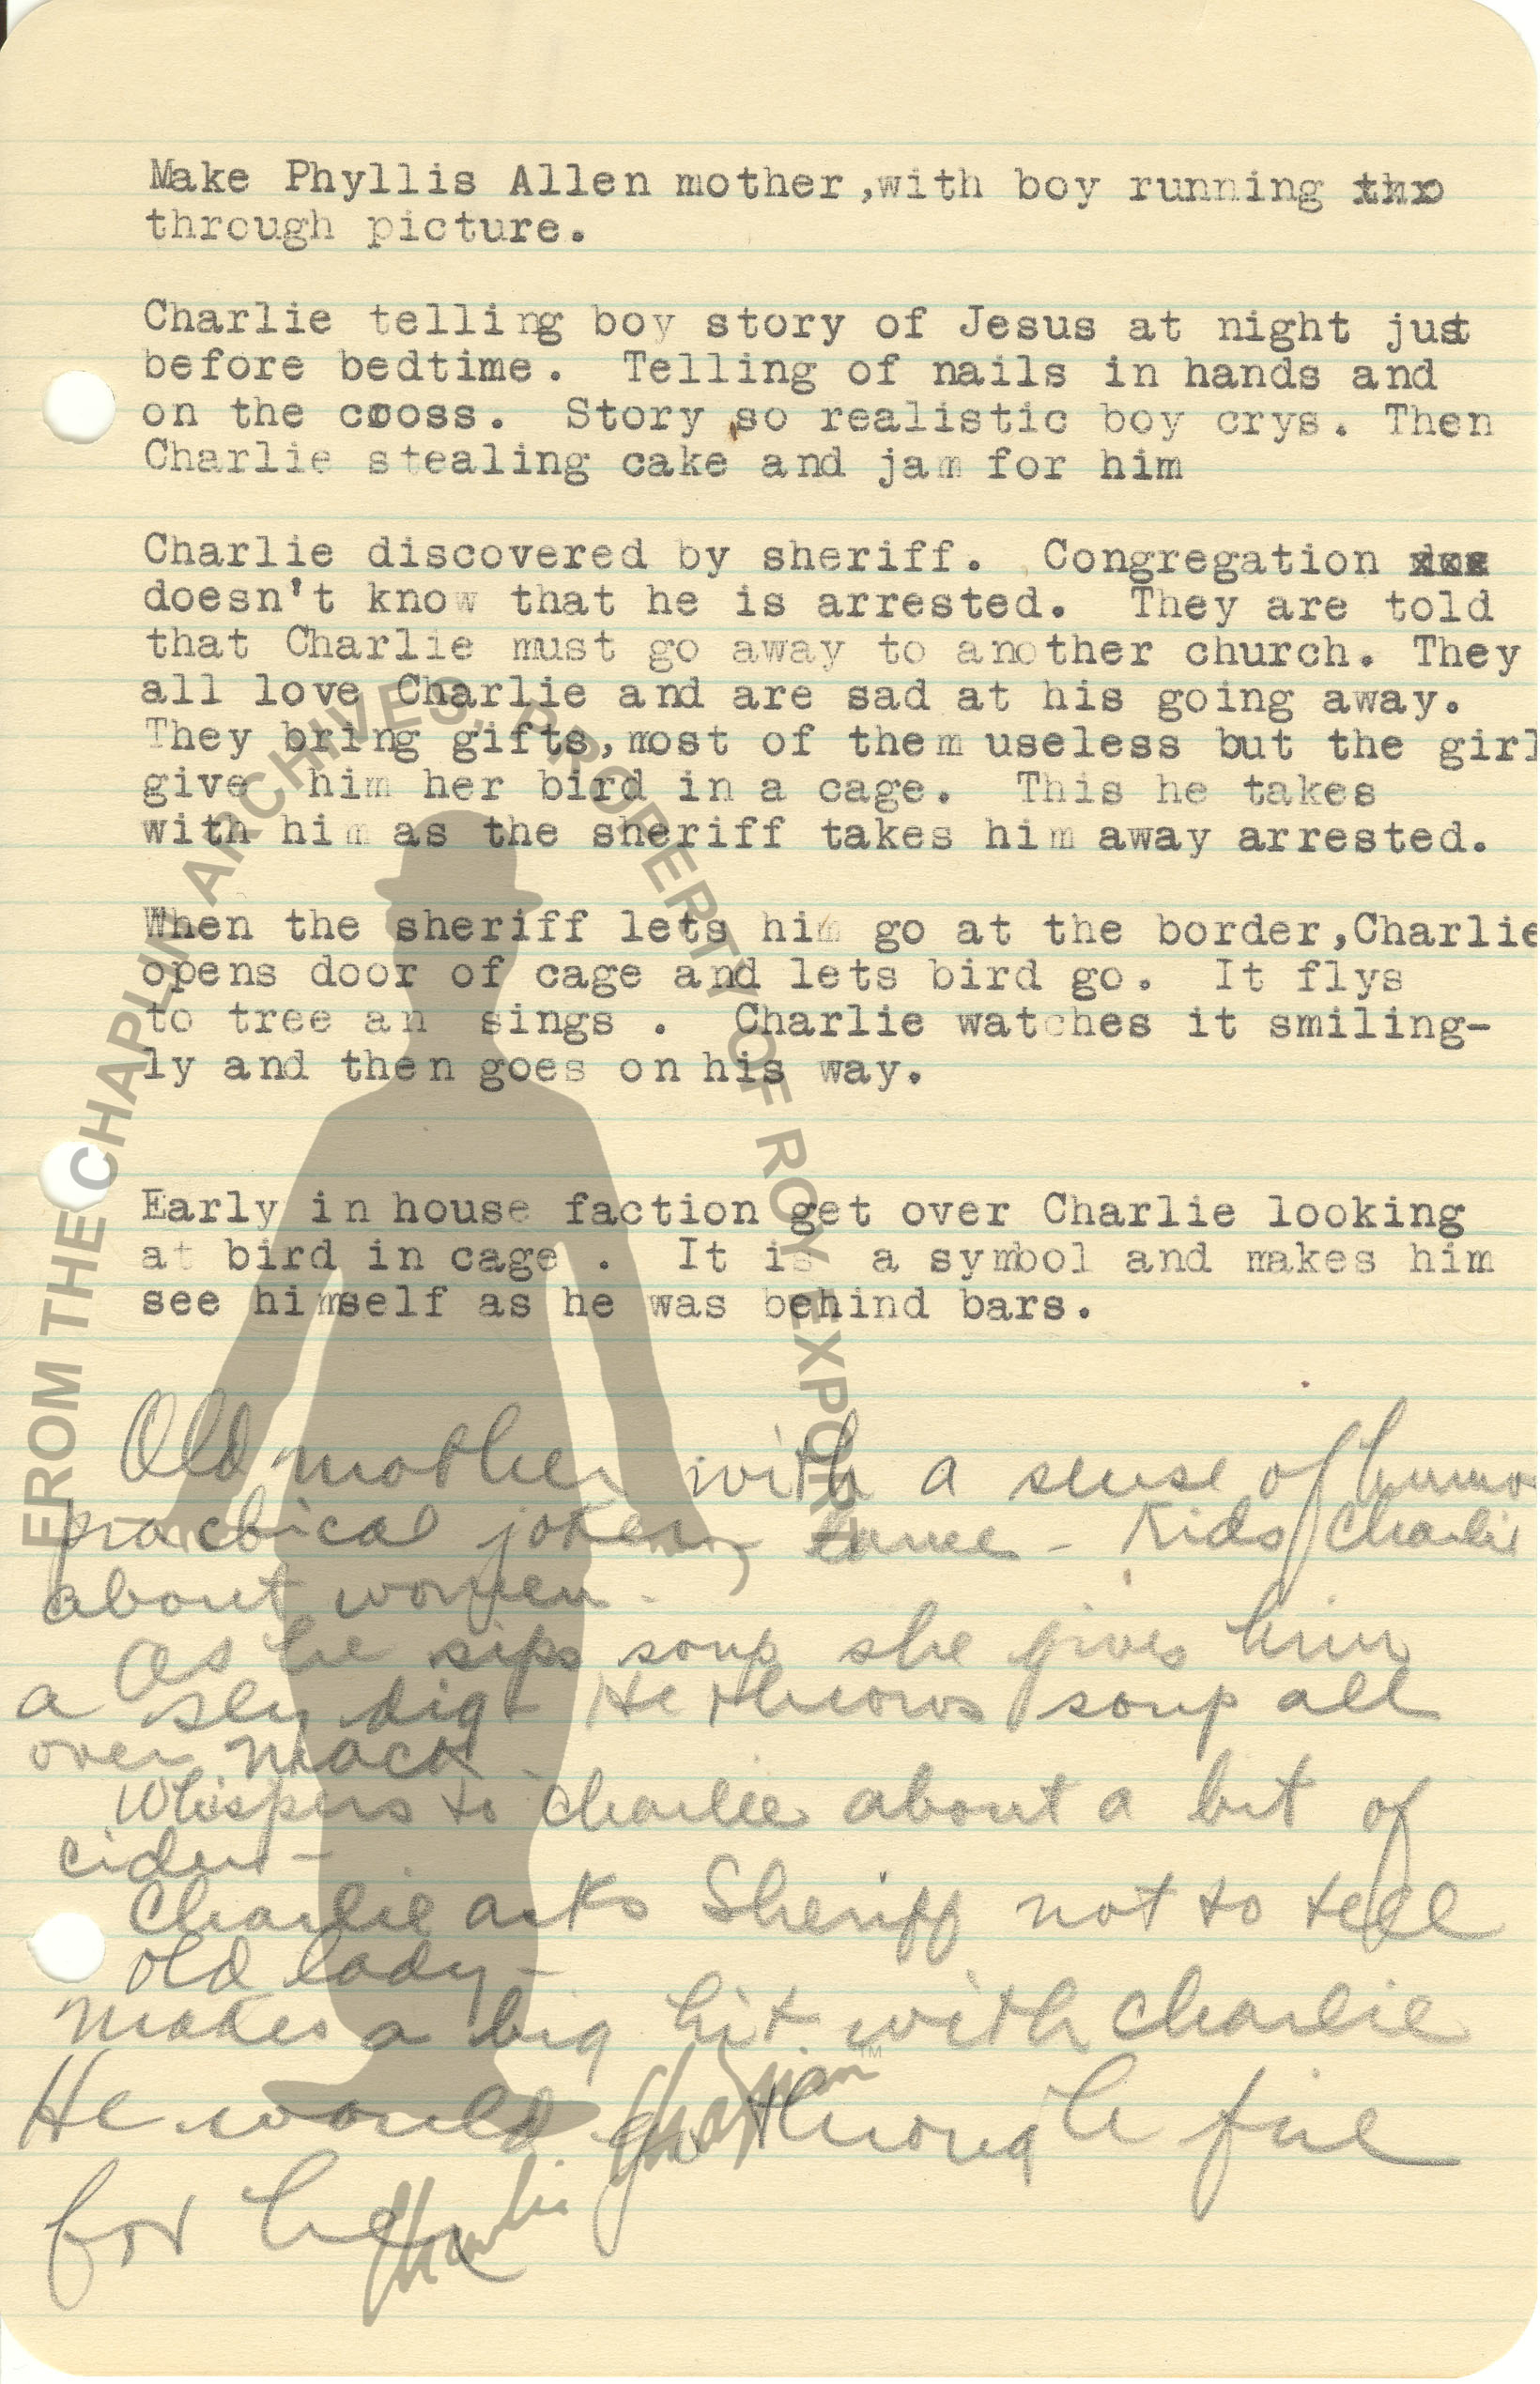 Make Phyllis Allen mother,with boy running thr
through picture.
Charlie telling boy story of Jesus at night just
before bedtime. Telling of nails in hands and
on the cross. Story so realistic boy crys. Then
Charlie stealing cake and jam for him
Charlie discovered by sheriff. Congregation
doesn't know that he is arrested. They are told
that Charlie must go away to another church. They
all love Charlie and are sad at his going away.
They bring gifts,most of them useless but the girl
give him her bird in a cage. This he takes
with him as the sheriff takes him away arrested.
When the sheriff lets him go at the border,Charlie
opens door of cage and lets bird go. It flys
to tree an sings . Charlie watches it smiling-
ly and then goes on his way.
Early in house faction get over Charlie looking
at bird in cage . It is a symbol and makes him
see himself as he was behind bars.
Old mother with a sense of humor
practical joker, lame - Kids Charlie
about women -
as he sips soup she gives him
a sly dig - He throws soup all
over mack -
Whispers to Charlie about a bit of
cider -
Charlie asks Sheriff not to tell
old lady -
makes a big hit with Charlie
He would go through fire
for her
FROM THE CHAPLIN ARCHIVES, PROPERTY OF ROY EXPORT
Charlie Chaplin
TM